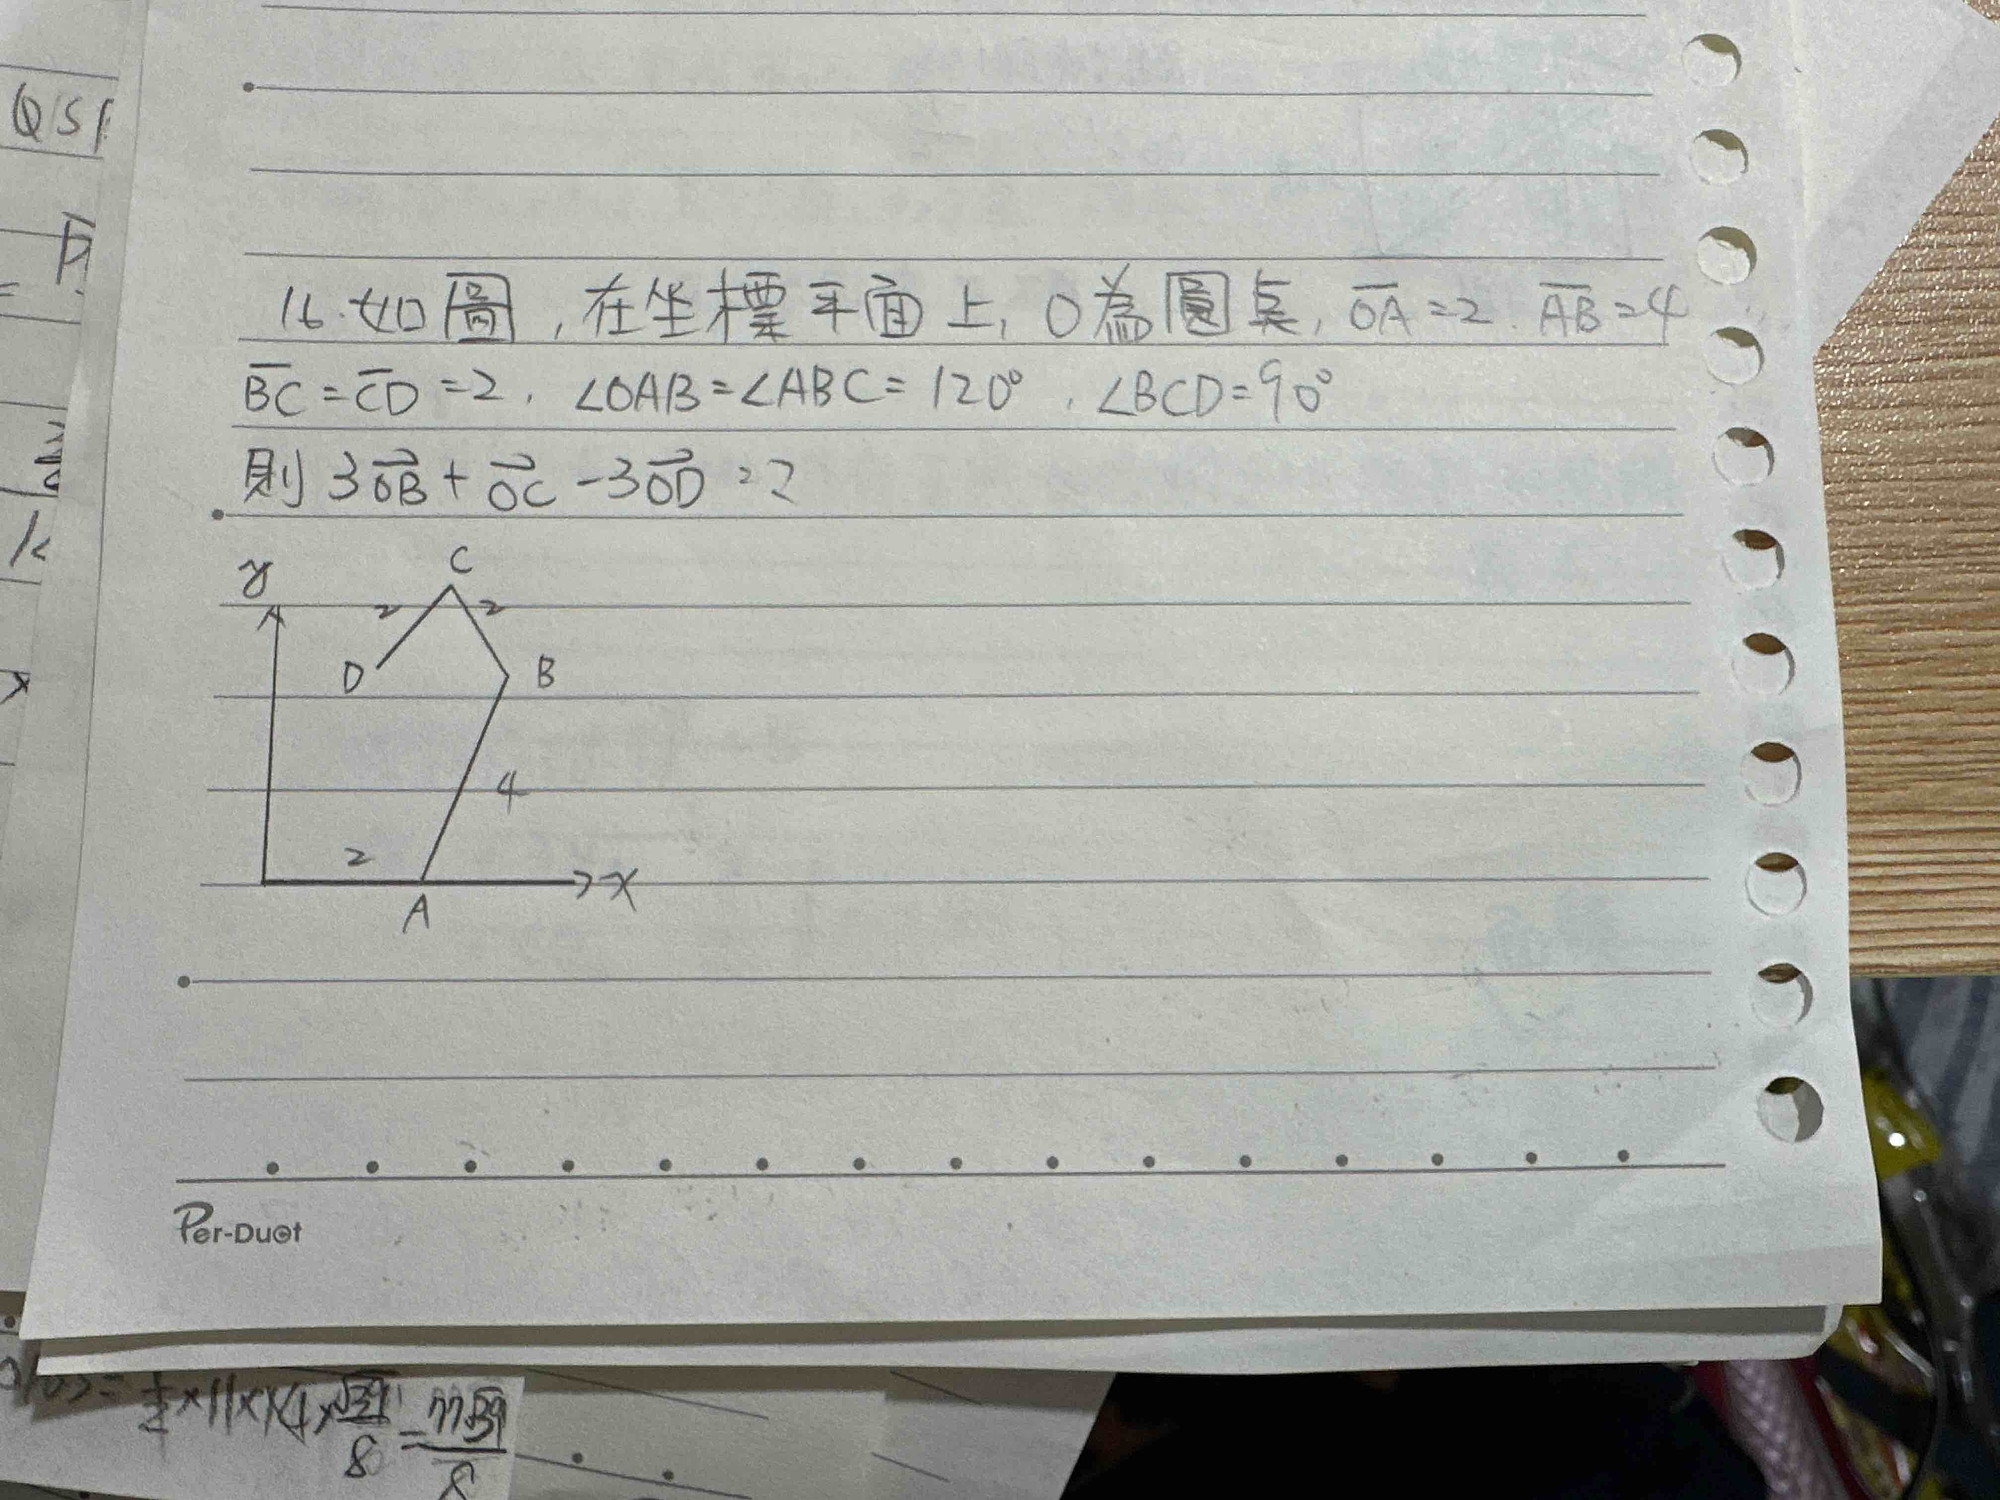 QSI
16.如圖,在坐標平面上,O為圓奌,OA=2.AB=4
BC=CD=2,∠OAB=∠ABC=120°,∠BCD=90°
則3OB+OC-3OD=?
y
C
2 2
D B
4
2
x
A
Per-Duet
1/2×11×14×√39/8=77√39/8